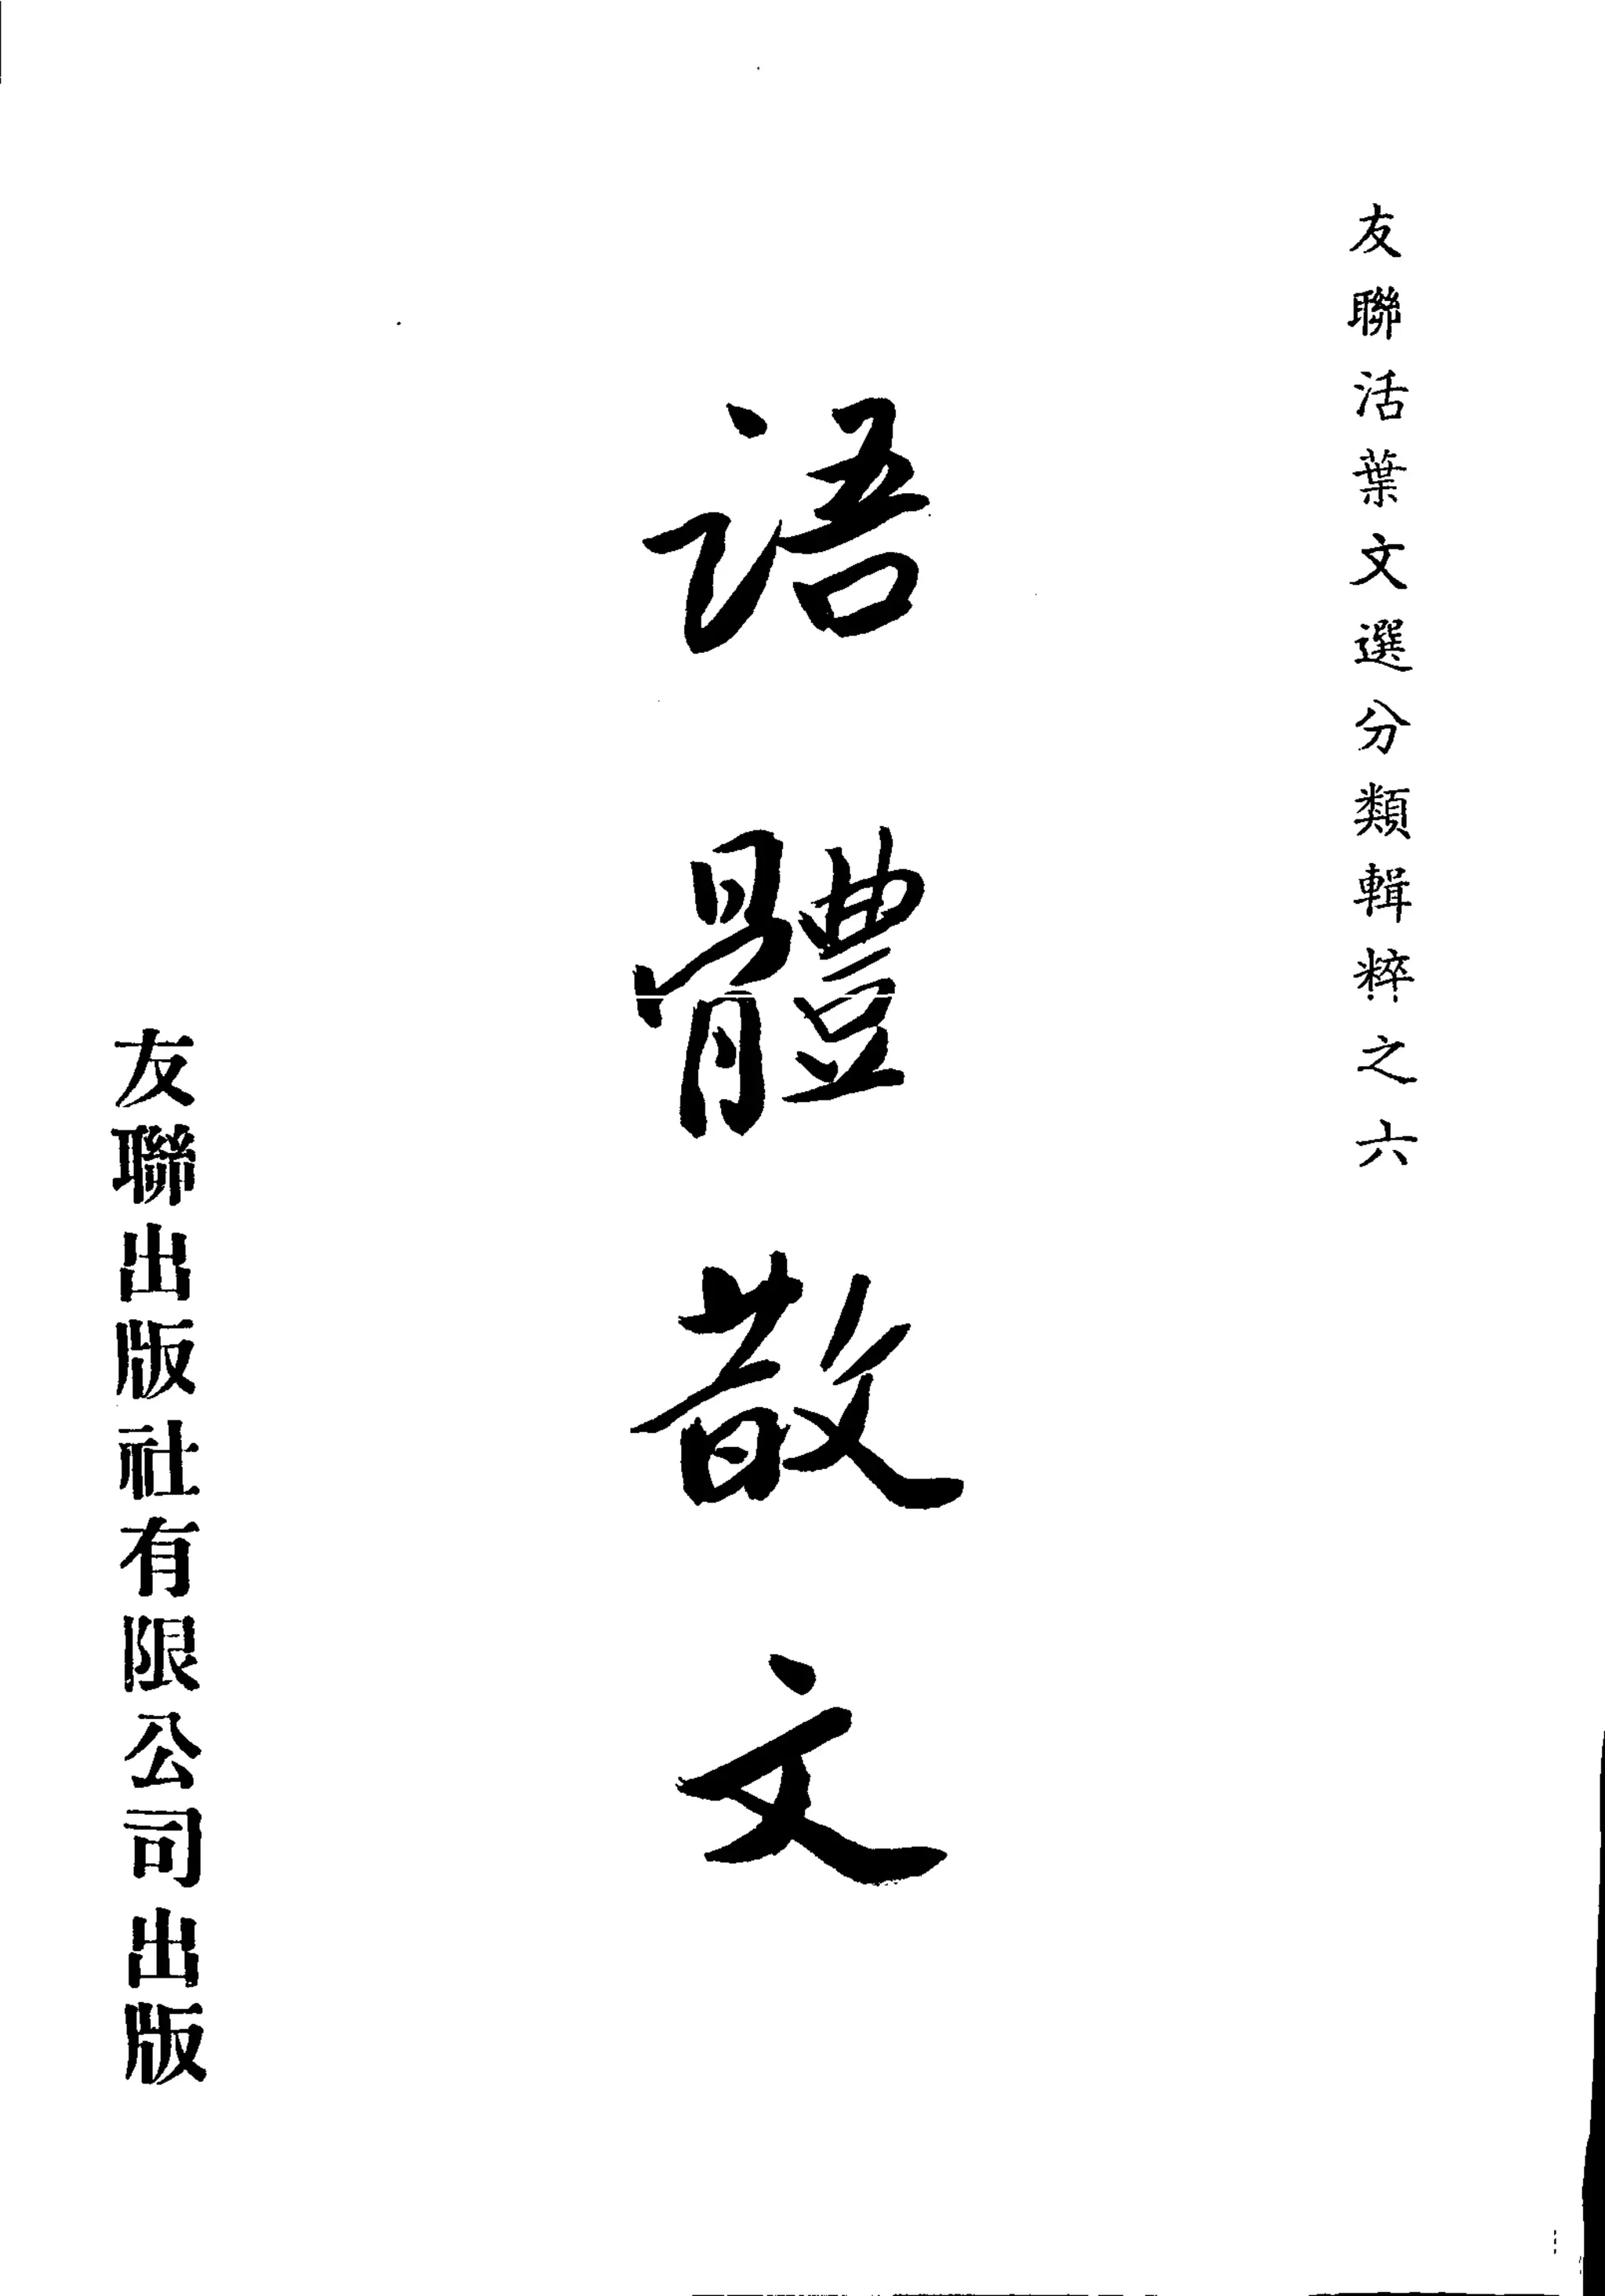 友聯活葉文選分類輯粹之六
語體散文
友聯出版社有限公司出版